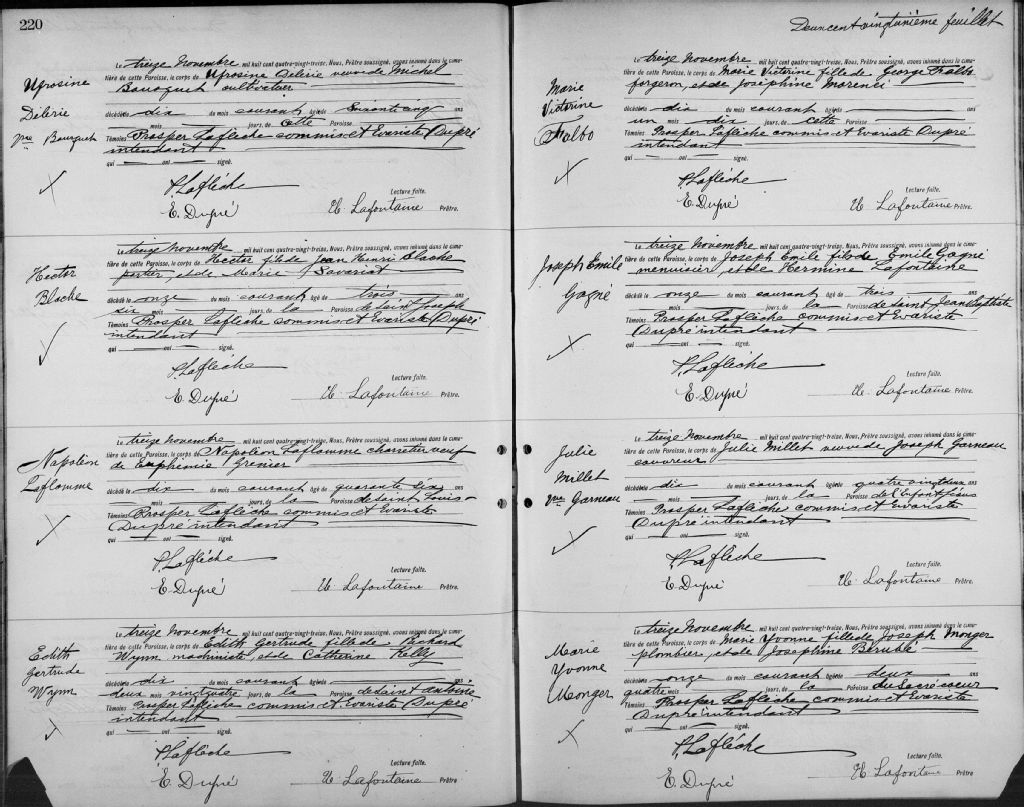 220
Ufrosine
Délérie
Vve Bouquet
Le treize Novembre mil huit cent quatre-vingt-treize, Nous, Prêtre soussigné, avons inhumé dans le cime-
tière de cette Paroisse, le corps de Ufrosine Délérie veuve de Michel
Bouquet cultivateur
décédée le dix du mois courant âgée de ans
mois jours, de cette Paroisse
Témoins Prosper Laflèche commis et Evariste Dupré
intendant
qui ont signé.
P. Laflèche
Lecture faite.
E. Dupré U. Lafontaine Prêtre.
Hector
Blache
Le treize Novembre mil huit cent quatre-vingt-treize, Nous, Prêtre soussigné, avons inhumé dans le cime-
tière de cette Paroisse, le corps de Hector fils de Jean Henri Blache
portier, et de Marie Savariat
décédé le onze du mois courant âgé de trois ans
six mois jours, de la Paroisse de saint Joseph
Témoins Prosper Laflèche commis et Evariste Dupré
intendant
qui ont signé.
P. Laflèche
Lecture faite.
E. Dupré U. Lafontaine Prêtre.
Napoléon
Laflamme
Le treize Novembre mil huit cent quatre-vingt-treize, Nous, Prêtre soussigné, avons inhumé dans le cime-
tière de cette Paroisse, le corps de Napoléon Laflamme charretier veuf
de Euphemie Grenier
décédé le dix du mois courant âgé de quarante six ans
mois jours, de la Paroisse de saint Louis
Témoins Prosper Laflèche commis et Evariste
Dupré intendant
qui ont signé.
P. Laflèche
Lecture faite.
E. Dupré U. Lafontaine Prêtre.
Edith
Gertrude
Wynn
Le treize Novembre mil huit cent quatre-vingt-treize, Nous, Prêtre soussigné, avons inhumé dans le cime-
tière de cette Paroisse, le corps de Edith Gertrude fille de Richard
Wynn machiniste, et de Catherine Kelly
décédée le dix du mois courant âgée de ans
deux mois vingtquatre jours, de la Paroisse de saint Antoine
Témoins Prosper Laflèche commis et Evariste Dupré
intendant
qui ont signé.
P. Laflèche
Lecture faite.
E. Dupré U. Lafontaine Prêtre
Deuxcent vingtunième feuillet
Marie
Victorine
Tralbo
Le treize Novembre mil huit cent quatre-vingt-treize, Nous, Prêtre soussigné, avons inhumé dans le cime-
tière de cette Paroisse, le corps de Marie Victorine fille de George Tralbo
forgeron, et de Joséphine Morenci
décédée le dix du mois courant âgée de ans
un mois dix jours, de cette Paroisse
Témoins Prosper Laflèche commis et Evariste Dupré
intendant
qui ont signé.
P. Laflèche
Lecture faite.
E. Dupré U. Lafontaine Prêtre.
Joseph Emile
Gagné
Le treize Novembre mil huit cent quatre-vingt-treize, Nous, Prêtre soussigné, avons inhumé dans le cime-
tière de cette Paroisse, le corps de Joseph Emile fils de Emile Gagné
menuisier, et de Hermine Lafontaine
décédé le onze du mois courant âgé de trois ans
mois jours, de la Paroisse de saint Jean Baptiste
Témoins Prosper Laflèche commis et Evariste
Dupré intendant
qui ont signé.
P. Laflèche
Lecture faite.
E. Dupré U. Lafontaine Prêtre.
Julie
Millet
Vve Garneau
Le treize Novembre mil huit cent quatre-vingt-treize, Nous, Prêtre soussigné, avons inhumé dans le cime-
tière de cette Paroisse, le corps de Julie Millet veuve de Joseph Garneau
couvreur
décédée le dix du mois courant âgée de quatre vingtdeux ans
mois jours, de la Paroisse de l'Enfant Jésus
Témoins Prosper Laflèche commis et Evariste
Dupré intendant
qui ont signé.
P. Laflèche
Lecture faite.
E. Dupré U. Lafontaine Prêtre.
Marie
Yvonne
Monger
Le treize Novembre mil huit cent quatre-vingt-treize, Nous, Prêtre soussigné, avons inhumé dans le cime-
tière de cette Paroisse, le corps de Marie Yvonne fille de Joseph Monger
plombier, et de Joséphine Bérubé
décédée le onze du mois courant âgée de deux ans
quatre mois jours, de la Paroisse du Sacré coeur
Témoins Prosper Laflèche commis et Evariste
Dupré intendant
qui ont signé.
P. Laflèche
Lecture faite.
E. Dupré U. Lafontaine Prêtre.